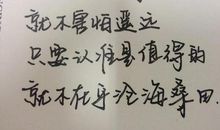 就不害怕遥远
只要认准是值得的
就不在乎沧海桑田